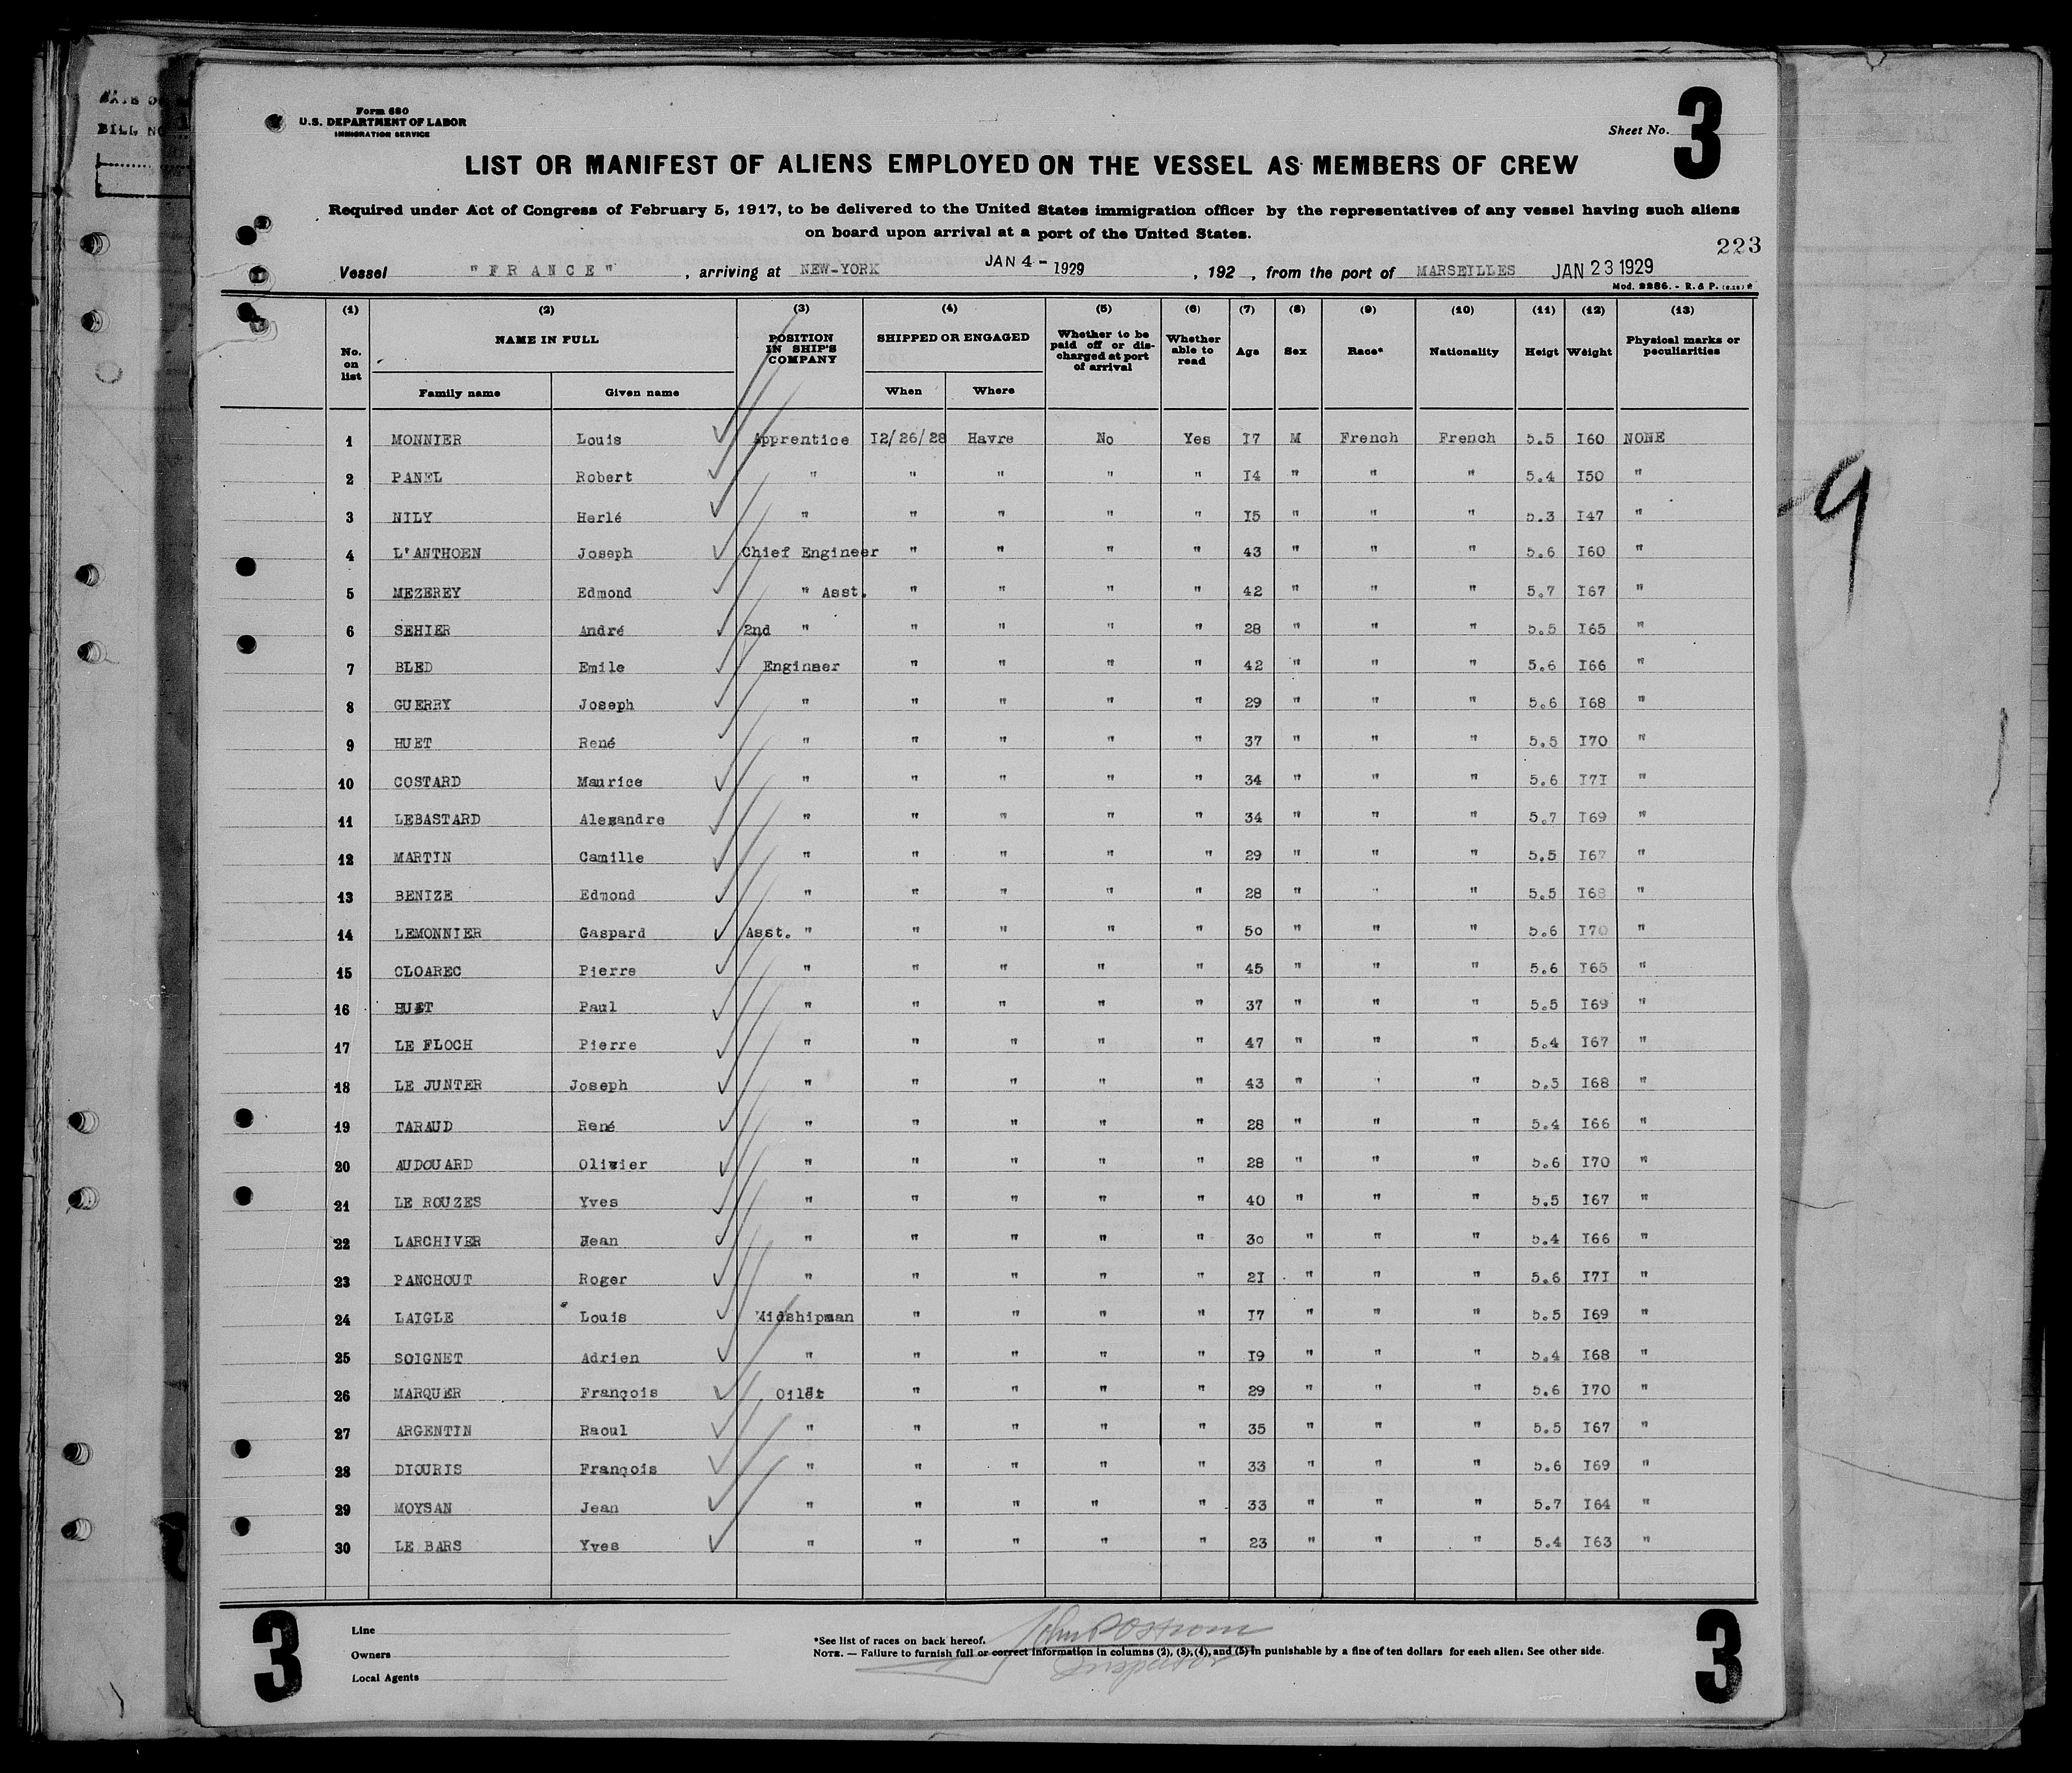 Form 680
U.S. DEPARTMENT OF LABOR
IMMIGRATION SERVICE
Sheet No. 3
LIST OR MANIFEST OF ALIENS EMPLOYED ON THE VESSEL AS MEMBERS OF CREW
Required under Act of Congress of February 5, 1917, to be delivered to the United States immigration officer by the representatives of any vessel having such aliens
on board upon arrival at a port of the United States.
223
Vessel "FRANCE", arriving at NEW-YORK JAN 4 - 1929, 192 , from the port of MARSEILLES JAN 23 1929
Mod. 2286. - R. & P.
(1) (2) (3) (4) (5) (6) (7) (8) (9) (10) (11) (12) (13)
No. on list NAME IN FULL Family name Given name POSITION IN SHIP'S COMPANY SHIPPED OR ENGAGED When Where Whether to be paid off or discharged at port of arrival Whether able to read Age Sex Race* Nationality Heigt Weight Physical marks or peculiarities
1 MONNIER Louis Apprentice 12/26/28 Havre No Yes 17 M French French 5.5 160 NONE
2 PANEL Robert " " " " " 14 " " " 5.4 150 "
3 NILY Herlé " " " " " 15 " " " 5.3 147 "
4 L'ANTHOEN Joseph Chief Engineer " " " " 43 " " " 5.6 160 "
5 MEZEREY Edmond " Asst. " " " " 42 " " " 5.7 167 "
6 SEHIER André 2nd " " " " " 28 " " " 5.5 165 "
7 BLED Emile Engineer " " " " 42 " " " 5.6 166 "
8 GUERRY Joseph " " " " " 29 " " " 5.6 168 "
9 HUET René " " " " " 37 " " " 5.5 170 "
10 COSTARD Maurice " " " " " 34 " " " 5.6 171 "
11 LEBASTARD Alexandre " " " " " 34 " " " 5.7 169 "
12 MARTIN Camille " " " " " 29 " " " 5.5 167 "
13 BENIZE Edmond " " " " " 28 " " " 5.5 168 "
14 LEMONNIER Gaspard Asst. " " " " " 50 " " " 5.6 170 "
15 CLOAREC Pierre " " " " " 45 " " " 5.6 165 "
16 HUET Paul " " " " " 37 " " " 5.5 169 "
17 LE FLOCH Pierre " " " " " 47 " " " 5.4 167 "
18 LE JUNTER Joseph " " " " " 43 " " " 5.5 168 "
19 TARAUD René " " " " " 28 " " " 5.4 166 "
20 AUDOUARD Olivier " " " " " 28 " " " 5.6 170 "
21 LE ROUZES Yves " " " " " 40 " " " 5.5 167 "
22 LARCHIVER Jean " " " " " 30 " " " 5.4 166 "
23 PANCHOUT Roger " " " " " 21 " " " 5.6 171 "
24 LAIGLE Louis Midshipman " " " " 17 " " " 5.5 169 "
25 SOIGNET Adrien " " " " " 19 " " " 5.4 168 "
26 MARQUER François " " " " 29 " " " 5.6 170 "
27 ARGENTIN Raoul " " " " " 35 " " " 5.5 167 "
28 DIOURIS François " " " " " 33 " " " 5.6 169 "
29 MOYSAN Jean " " " " " 33 " " " 5.7 164 "
30 LE BARS Yves " " " " " 23 " " " 5.4 163 "
9
3
Line
Owners
Local Agents
*See list of races on back hereof.
NOTE. — Failure to furnish full or correct information in columns (2), (3), (4), and (5) in punishable by a fine of ten dollars for each alien. See other side.
Inspector
3